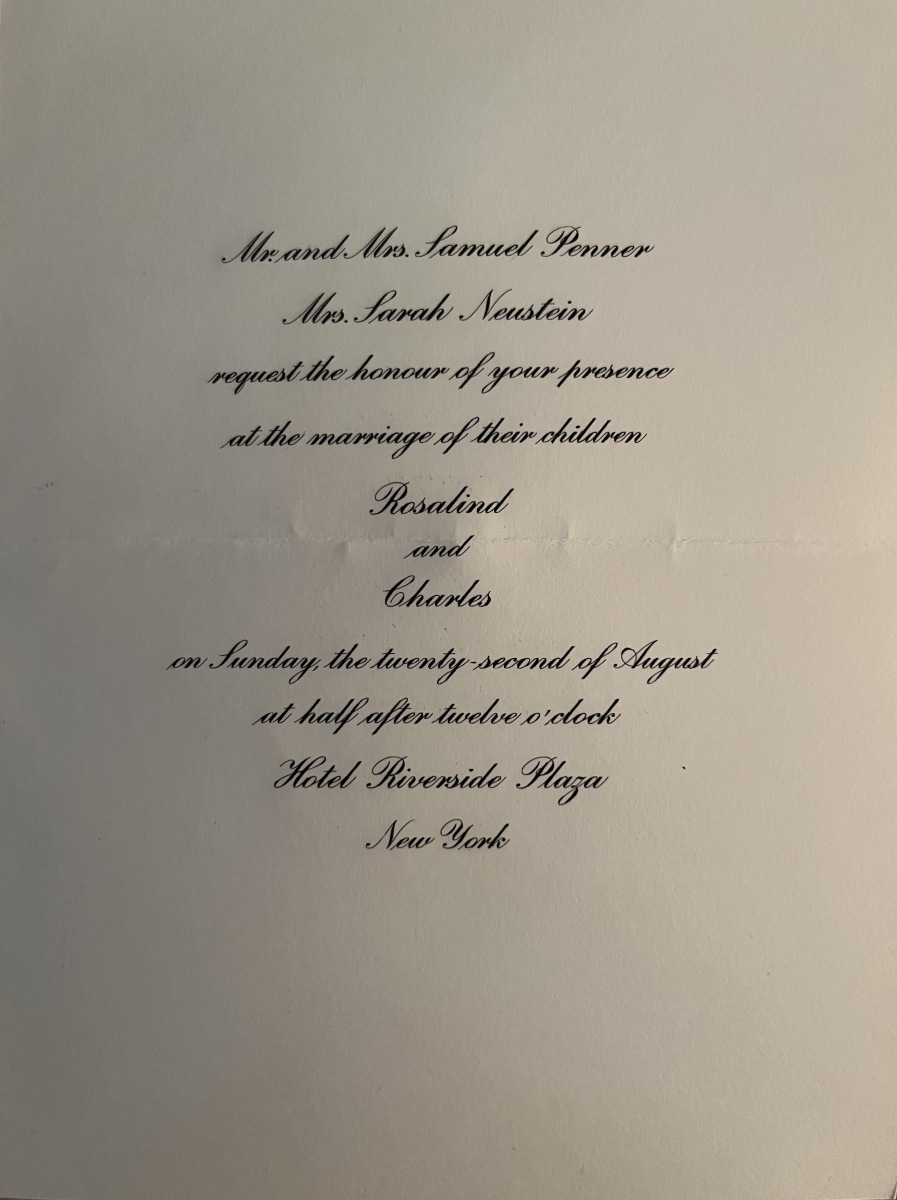 Mr. and Mrs. Samuel Penner
Mrs. Sarah Neustein
request the honour of your presence
at the marriage of their children
Rosalind
and
Charles
on Sunday, the twenty-second of August
at half after twelve o'clock
Hotel Riverside Plaza
New York